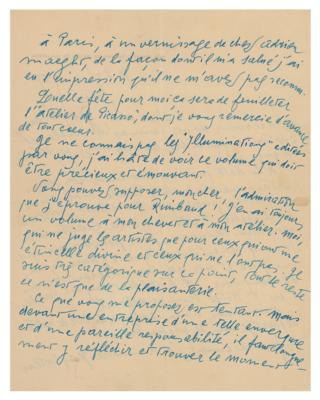 à Paris, à un vernissage de chez Adrien
maeght, de la façon dont il m'a salué j'ai
eu l'impression qu'il ne m'avait pas reconnu.
Quelle fête pour moi ce sera de feuilleter
l'"atelier de Picasso, dont je vous remercie d'avance
de tout cœur.
Je ne connais pas les "Illuminations" éditées
par vous, j'ai hâte de voir ce volume, qui doit
être précieux et émouvant.
Vous pouvez supposer, mon cher, l'admiration
que j'éprouve pour Rimbaud; j'en ai toujours
un volume à mon chevet et à mon atelier. moi,
qui ne juge les artistes que pour ceux qui ont une
étincelle divine et ceux qui ne l'ont pas. Je
suis très catégorique sur ce point, tout le reste
ce n'est que de la plaisanterie.
Ce que vous me proposez est tentant. mais
devant une entreprise d'une telle envergure
et d'une pareille responsabilité, il faut longue-
ment y réfléchir et trouver le moment